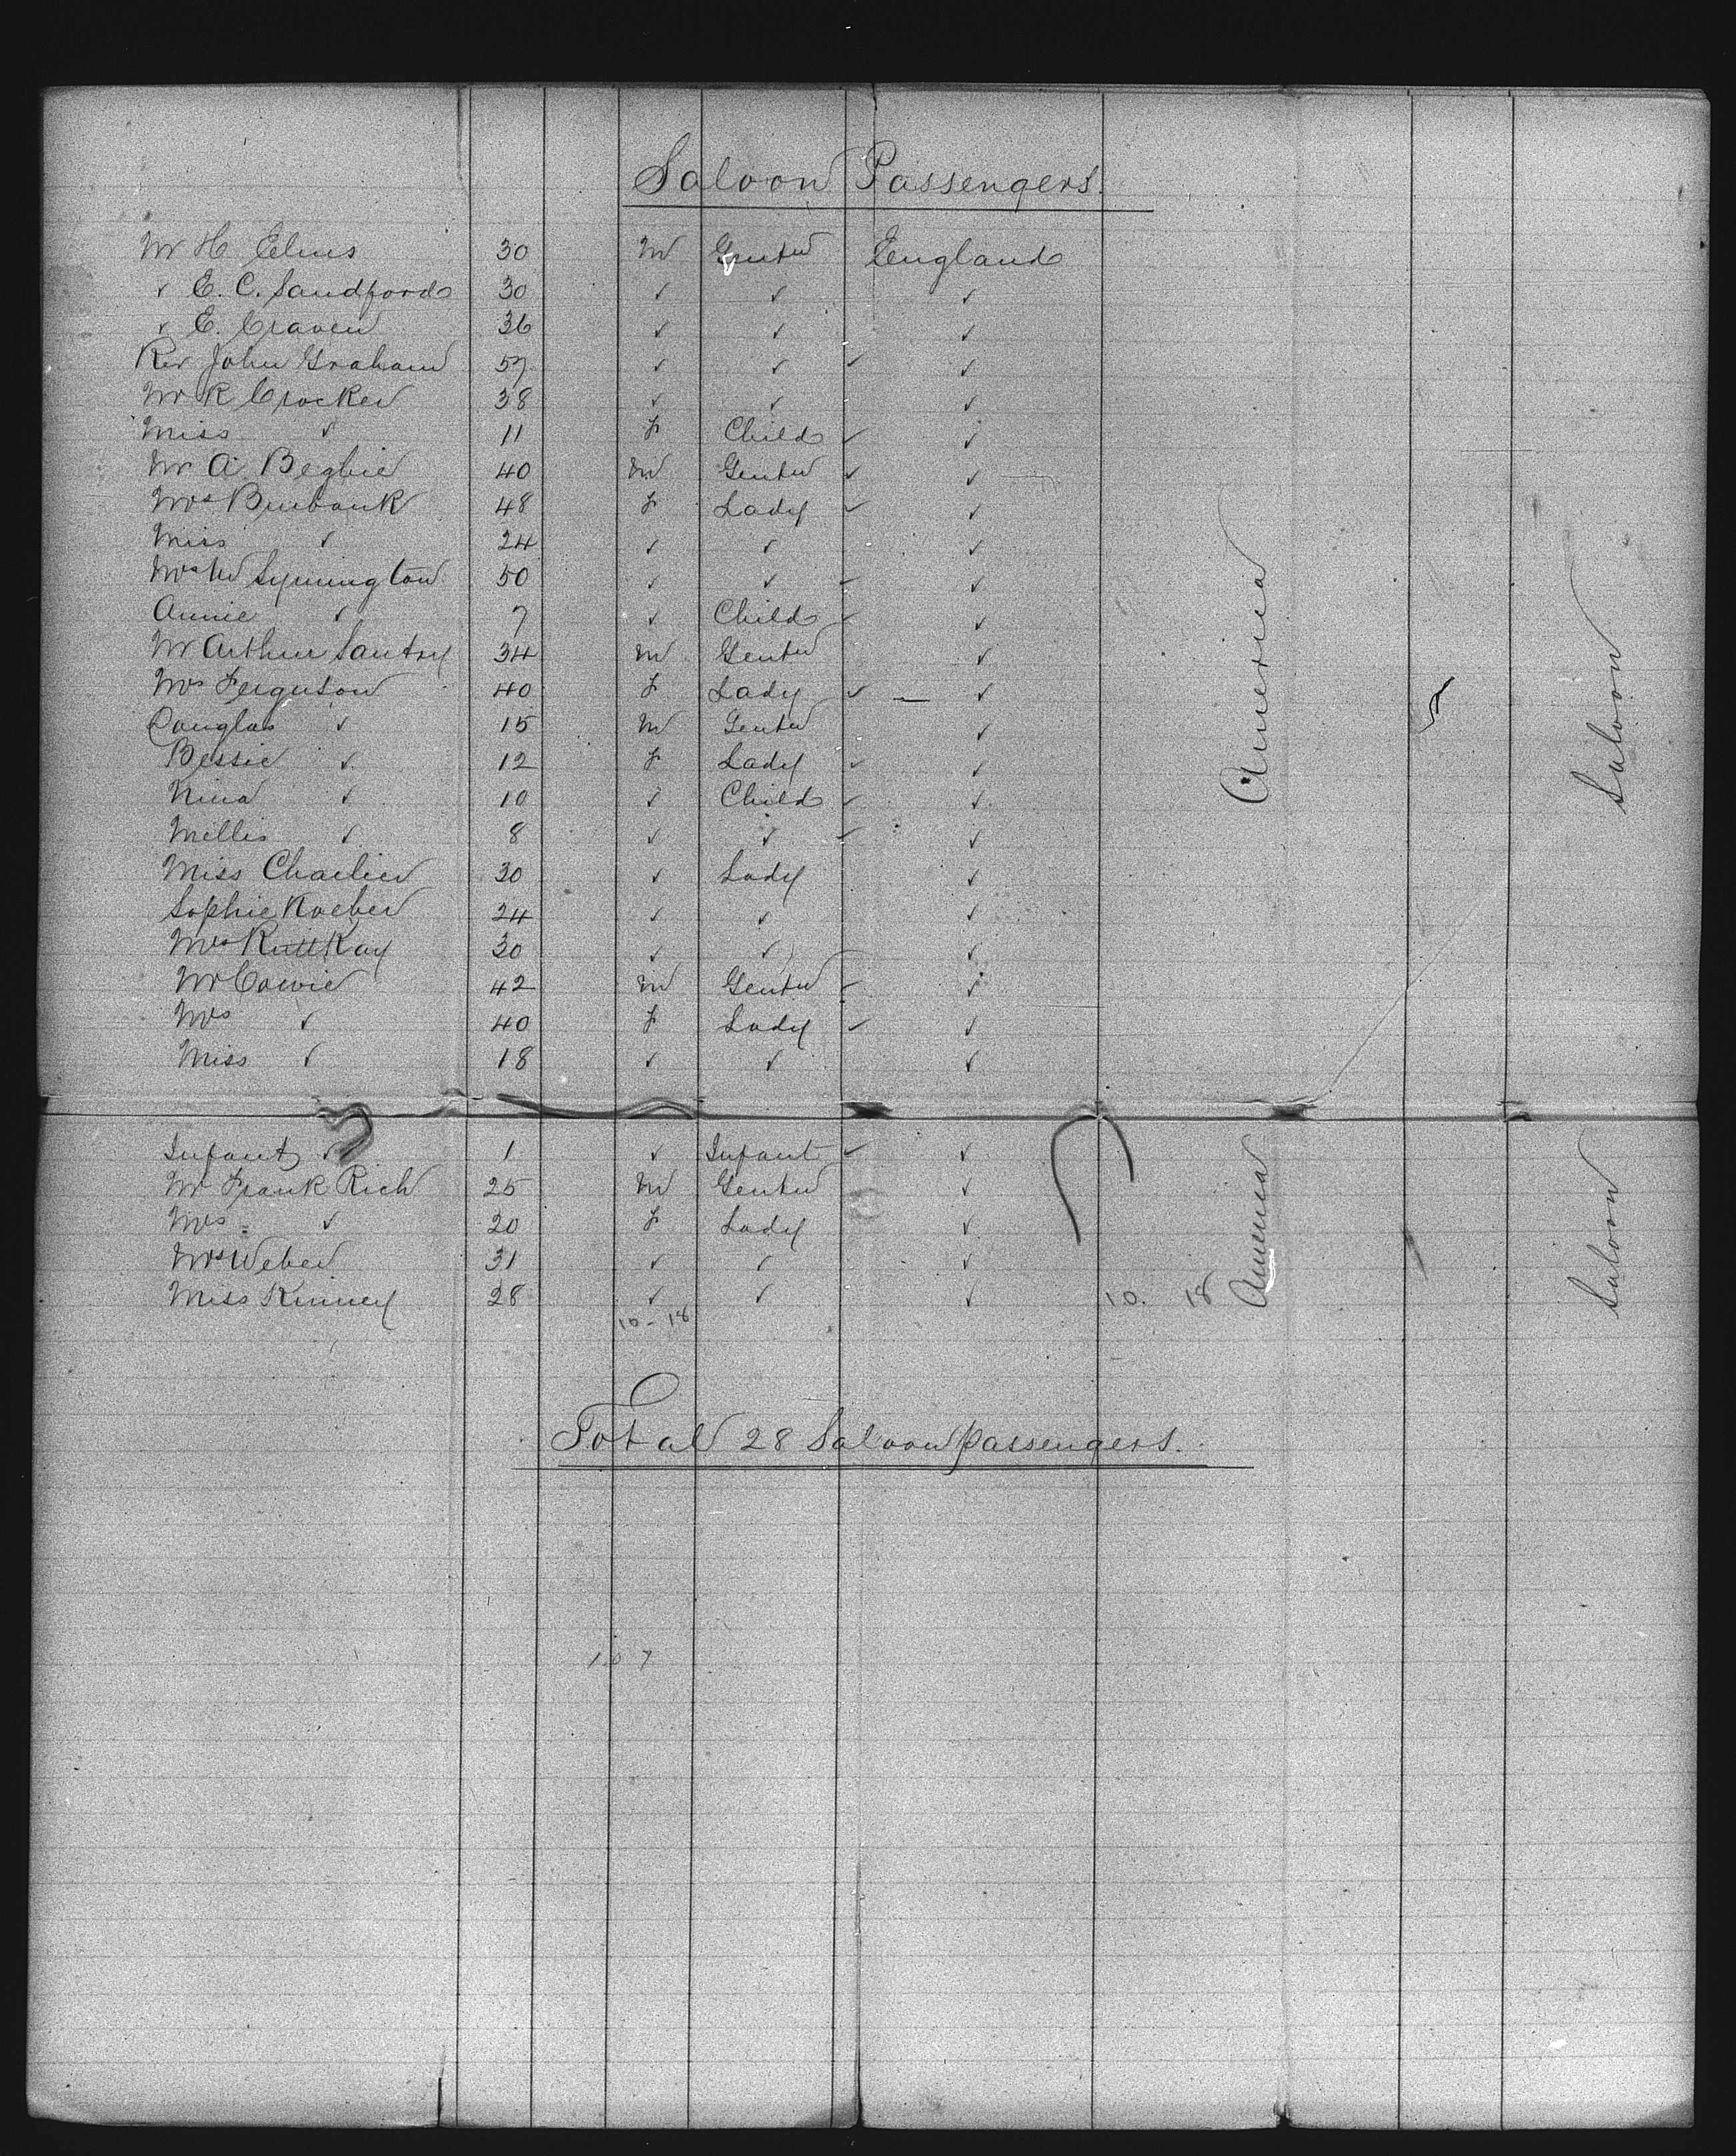 Saloon Passengers.
Mr H Elms 30 M Gentn England
✓ E. C. Sandford 30 ✓ ✓ ✓
✓ E. Craven 36 ✓ ✓ ✓
Rev John Graham 57 ✓ ✓ ✓ ✓
Mr R Crocker 38 ✓ ✓ ✓
Miss ✓ 11 F Child ✓ ✓
Mr A Begbie 40 M Gentn ✓ ✓
Mrs Burbank 48 F Lady ✓ ✓
Miss ✓ 24 ✓ ✓ ✓
Mrs W Symington 50 ✓ ✓ ✓ ✓
Annie ✓ 7 ✓ Child ✓ ✓
Mr Arthur Santry 34 M Gentn ✓
Mrs Ferguson 40 F Lady ✓ — ✓
Douglas ✓ 15 M Gentn ✓
Bessie ✓ 12 F Lady ✓ ✓
Nina ✓ 10 ✓ Child ✓ ✓
Millis ✓ 8 ✓ ✓ ✓ ✓
Miss Charlier 30 ✓ Lady ✓
Sophie Koeber 24 ✓ ✓ ✓
Mrs RuttKay 30 ✓ ✓ ✓
Mr Cowie 42 M Gentn ✓ ✓
Mrs ✓ 40 F Lady ✓ ✓
Miss ✓ 18 ✓ ✓ ✓
America
Saloon
Infant ✓ 1 ✓ Infant ✓ ✓
Mr Frank Rich 25 M Gentn ✓
Mrs ✓ 20 F Lady ✓
Mrs Weber 31 ✓ ✓ ✓
Miss Kinney 28 ✓ ✓ ✓ 10. 18
10-18
America
Saloon
Total 28 Saloon passengers.
107